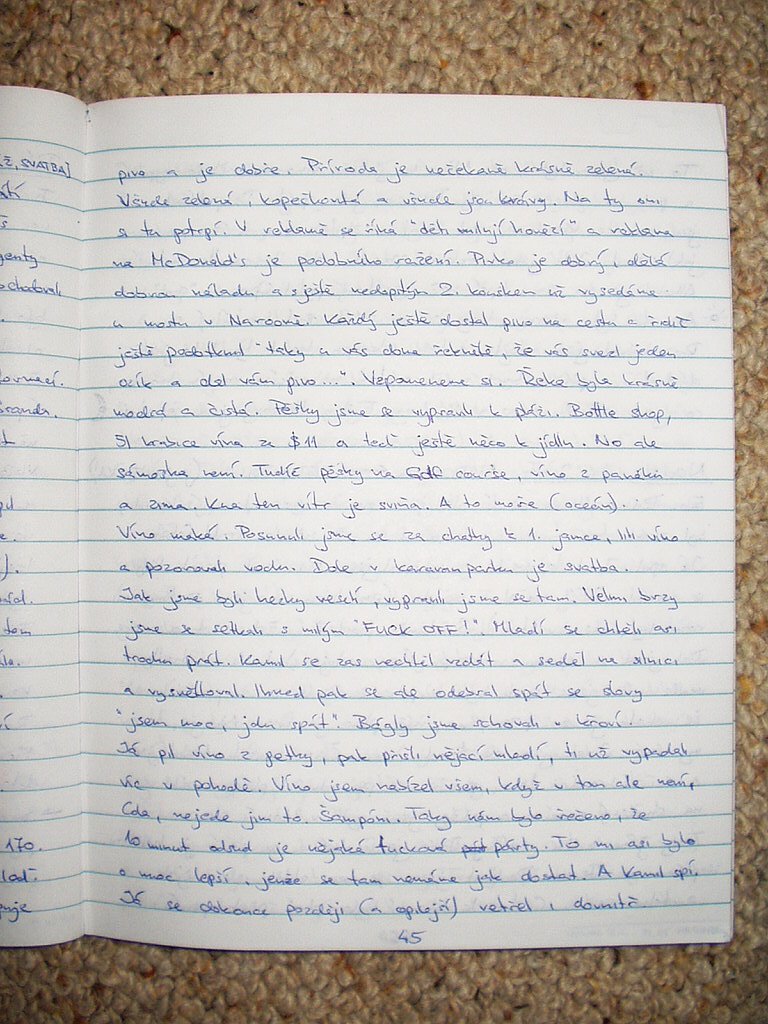 Ž, SVATBA]
genty
170.
pivo a je dobře. Příroda je nečekaně krásně zelená.
Všude zelená, kopečkovitá a všude jsou krávy. Na ty oni
si tu potrpí. V reklamě se říká "děti milují hovězí" a reklama
na McDonald's je podobného ražení. Pivko je dobrý, dělá
dobrou náladu a s ještě nedopitým 2. kouskem už vysedáme
u mostu v Naroomě. Každý ještě dostal pivo na cestu a řidič
ještě podotknul "taky u vás doma řekněte, že vás svezl jeden
ozík a dal vám pivo...". Vzpomeneme si. Řeka byla krásně
modrá a čistá. Pěšky jsme se vypravili k pláži. Bottle shop,
5l krabice vína za $11 a teď ještě něco k jídlu. No ale
sámoška není. Tudíž pěšky na Golf course, víno z panáků
a zima. Kua ten vítr je sviňa. A to moře (oceán).
Víno maká. Posunuli jsme se za chatky k 1. jamce, lili víno
a pozorovali vodu. Dole v karavanparku je svatba.
Jak jsme byli hezky veselí, vypravili jsme se tam. Velmi brzy
jsme se setkali s milým "FUCK OFF!". Mladí se chtěli asi
trochu prát. Kamil se zas nechtěl vzdát a seděl na silnici
a vysvětloval. Ihned pak se ale odebral spát se slovy
"jsem moc, jdu spát". Bágly jsme schovali v křoví.
Já pil víno z petky, pak přišli nějací mladí, ti už vypadali
víc v pohodě. Víno jsem nabízel všem, když v tom ale není
Cola, nejede jim to. Šampóni. Taky nám bylo řečeno, že
10 minut odsud je nějaká fucková párty. To mi asi bylo
o moc lepší, jenže se tam nemáme jak dostat. A Kamil spí.
Já se dokonce později (a opilejší) vetřel i dovnitř
45